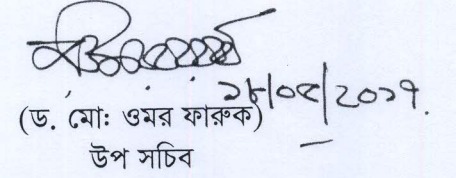 ২৮/০৫/২০১৭.
(ড. মো: ওমর ফারুক)
উপ সচিব